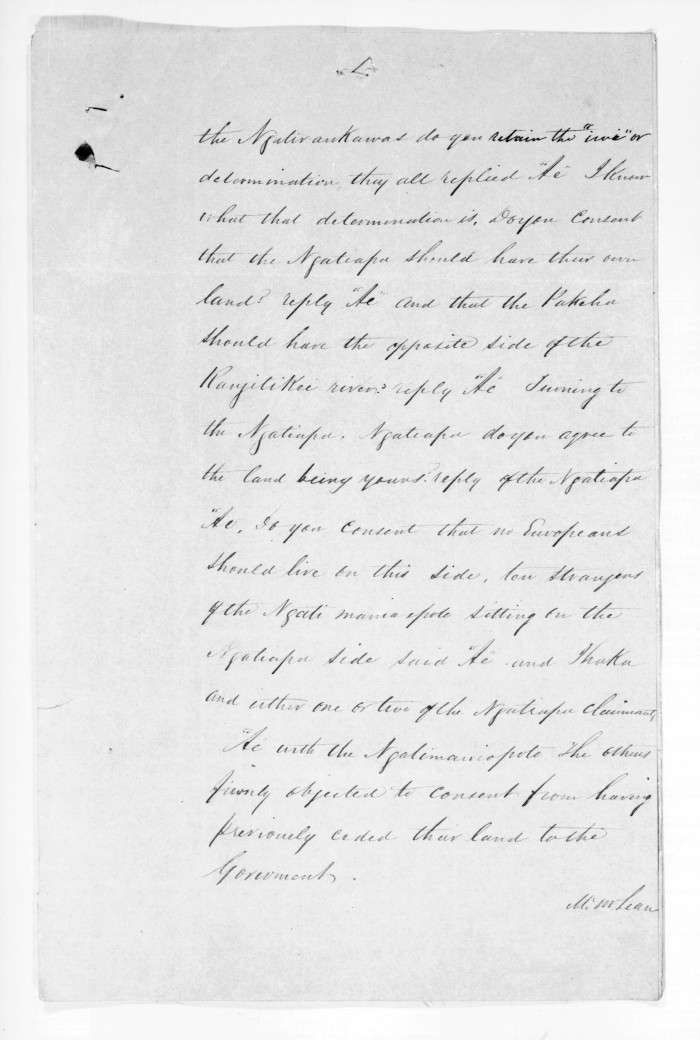 7.
the Ngatiraukawas do you retain the "iwi" or
determination, they all replied "Ae" I know
what that determination is. Do you consent
that the Ngatiapa should have their own
land? reply "Ae" and that the Pakeha
should have the opposite side of the
Rangitikei river? reply "Ae" Turning to
the Ngatiapa. Ngatiapa do you agree to
the land being yours? reply of the Ngatiapa
"Ae. Do you consent that no Europeans
should live on this side, ten strangers
of the Ngati maniaopoto sitting on the
Ngatiapa side said "Ae" and Ihaka
and either one or two of the Ngatiapa claimants
"Ae with the Ngatimaniopoto the others
firmly objected to consent from having
previously ceded their land to the
Goverment.
Mr. McLean